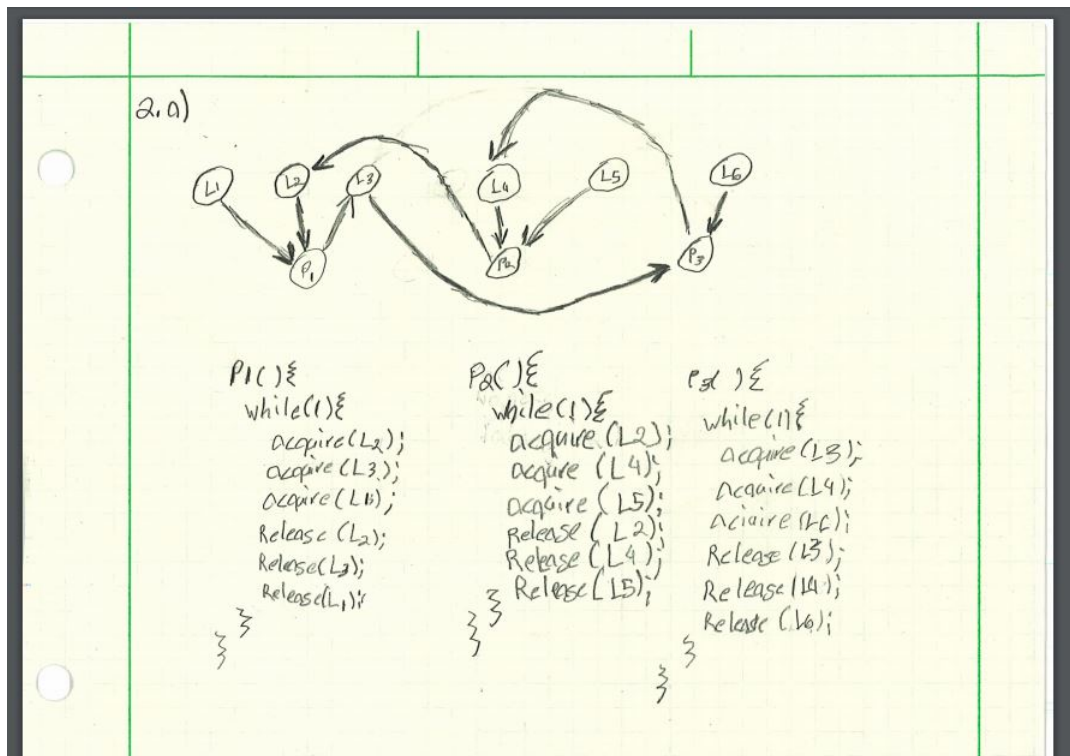 2.a)
L1 L2 L3 L4 L5 L6
P1 P2 P3
P1(){
while(1){
acquire(L2);
acquire(L3);
acquire(L1);
Release(L2);
Release(L3);
Release(L1);
}
}
P2(){
while(1){
acquire(L2);
acqure(L4);
acquire(L5);
release(L2);
Release(L4);
Release(L5);
}
}
P3(){
while(1){
acquire(L3);
acquire(L4);
Release(L3);
Release(L4);
Release(L6);
}
}